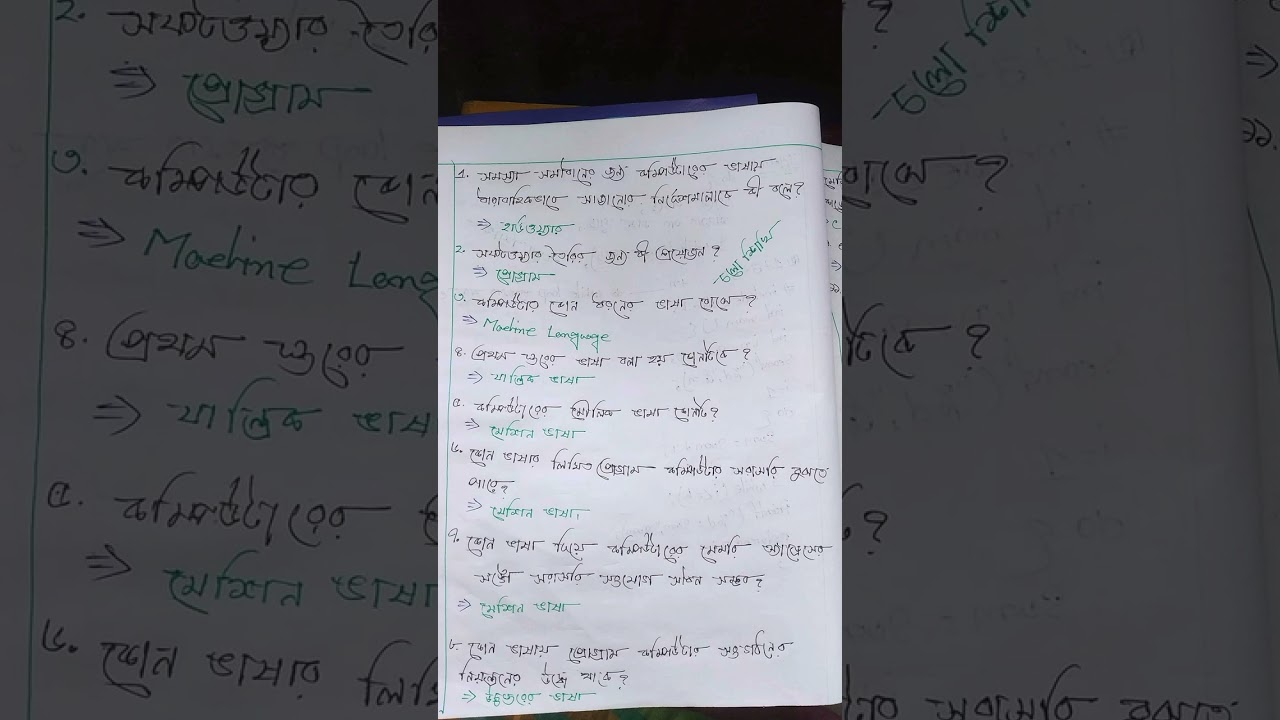 ১. সমস্যা সমাধানের জন্য কম্পিউটারের ভাষায়
ধারাবাহিকভাবে সাজানোর নির্দেশমালাকে কী বলে?
⇒ হার্ডওয়্যার
২. সফটওয়্যার তৈরির জন্য কী প্রয়োজন?
⇒ প্রোগ্রাম
চলো শিখি
৩. কম্পিউটার কোন ধরনের ভাষা বোঝে?
⇒ Machine Language
৪. প্রথম স্তরের ভাষা বলা হয় কোনটিকে?
⇒ যান্ত্রিক ভাষা
৫. কম্পিউটারের মৌলিক ভাষা কোনটি?
⇒ মেশিন ভাষা
৬. কোন ভাষায় লিখিত প্রোগ্রাম কম্পিউটার সরাসরি বুঝতে
পারে?
⇒ মেশিন ভাষা।
৭. কোন ভাষা দিয়ে কম্পিউটারের মেমরি অ্যাড্রেসের
সঙ্গে সরাসরি সংযোগ সাধন সম্ভব?
⇒ মেশিন ভাষা
৮. কোন ভাষায় প্রোগ্রাম কম্পিউটার সংগঠনের
নিয়ন্ত্রণের ঊর্ধ্বে থাকে?
⇒ উচ্চস্তরের ভাষা